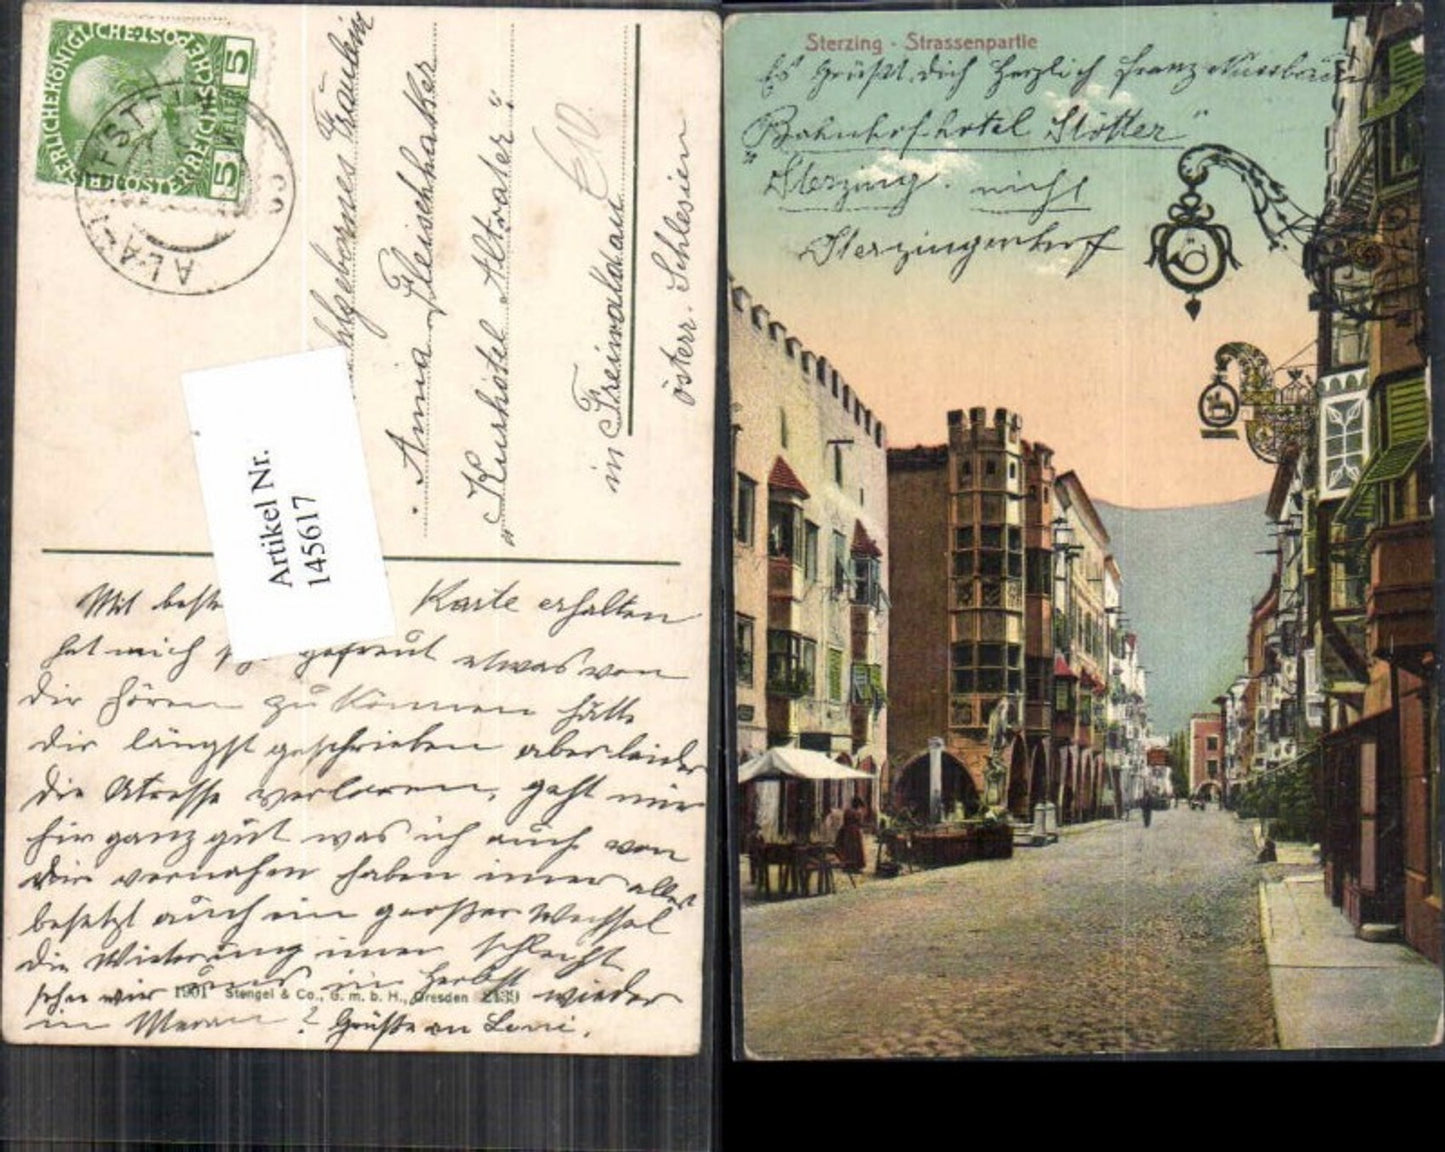 KAISERLICHEKÖNIGLICHE·ÖSTERREICHISCHE·POST
5 HELLER 5
ALABA
hlgebornes Fräulein
Anna Fleischhaker
"Kurhôtel Altvater"
in Freiwaldau
österr. Schlesien
Artikel Nr.
145617
Mit beste Karte erhalten
hat mich gefreut etwas von
dir hören zu können hätte
dir längst geschrieben aber leider
die Adresse verloren, geht mir
hir ganz gut was ich auch von
dir vernohen haben imer alles
besetzt auch ein großer Wechsel
die Witterung imer schlecht
sehn wir uns im Herbst wieder
in Meran? Grüße an Loni.
1901 Stengel & Co., G. m. b. H., Dresden 2139
Sterzing - Strassenpartie
Es Grüßt dich Herzlich Franz Nussbaum
Bahnhofhotel Stötter"
"Sterzing. nicht
Sterzingerhof